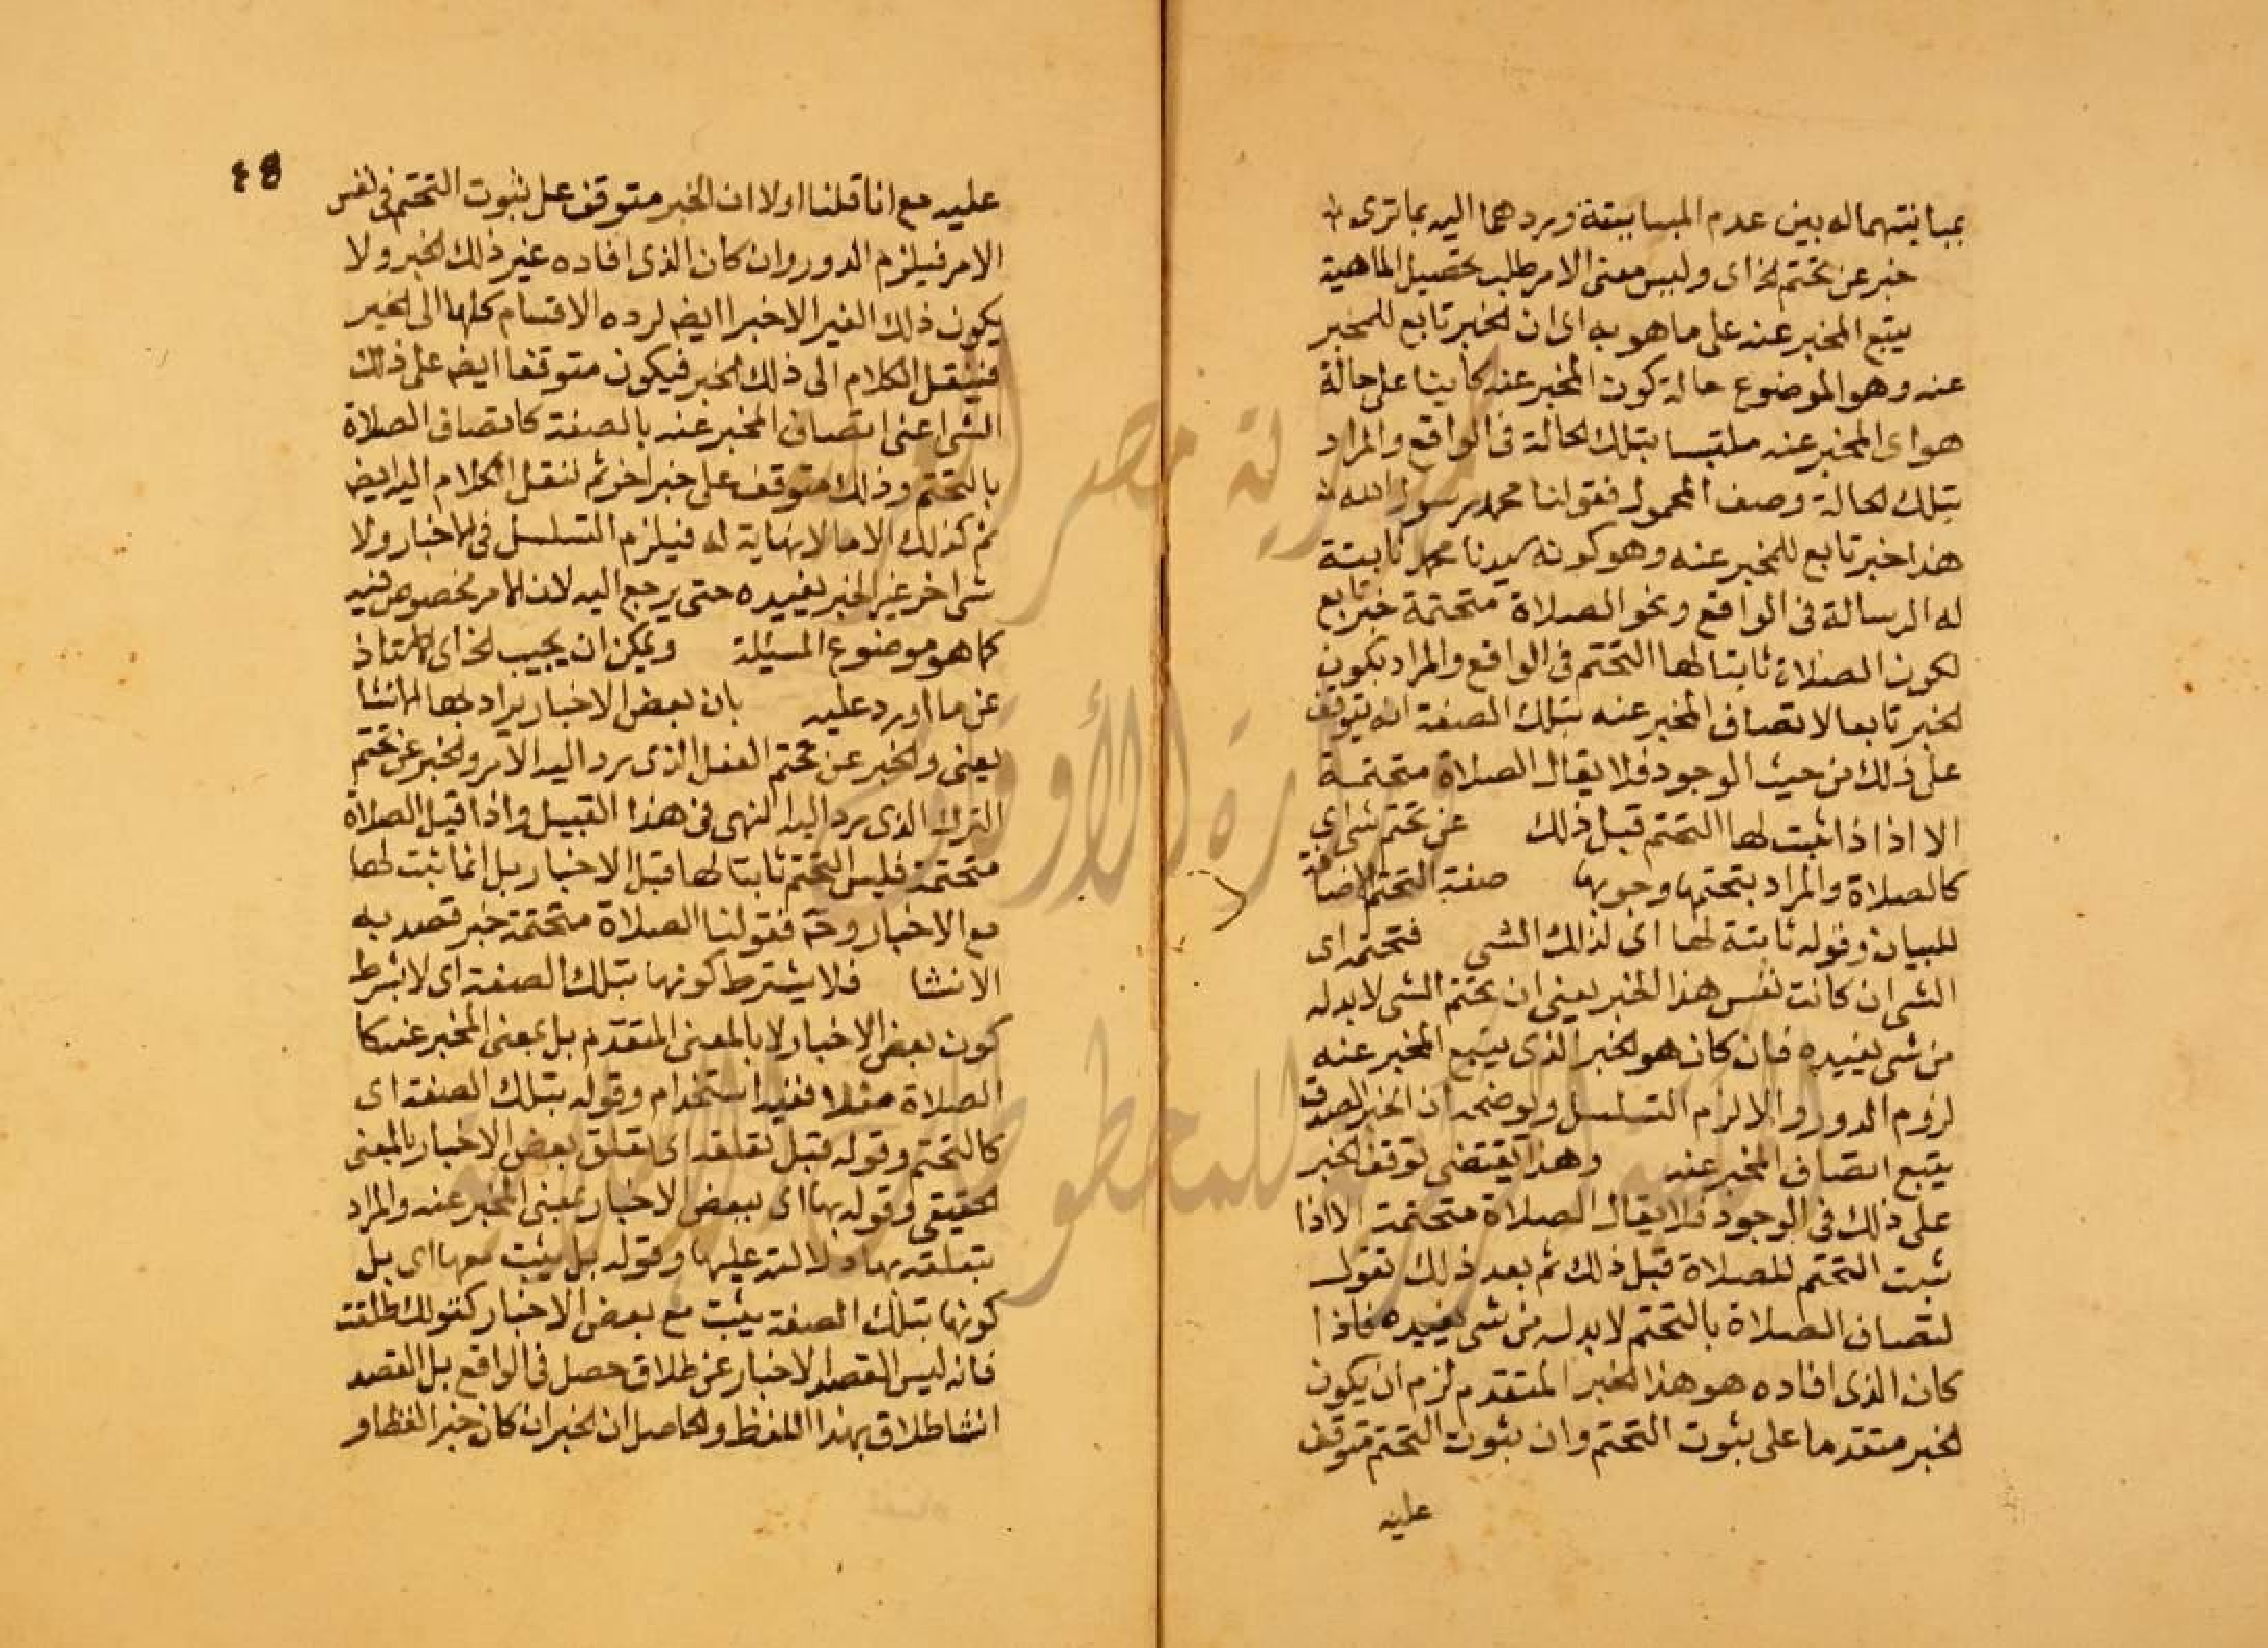 بمباينتهما له بين عدم المباينة وبردهما اليه بما ترى
خبر عن تحتم الخ اى وليس معنى الامر طلب تحصيل الماهية
يتبع المخبر عنه على ما هو به اى ان الخبر تابع للمخبر
عنه وهو الموضوع حالة كون المخبر عنه كاينا على حالة
هو اى المخبر عنه ملتبسا بتلك الحالة فى الواقع والمراد
بتلك الحالة وصف المحمول فقولنا محمد رسول الله
هذا خبر تابع للمخبر عنه وهو كونه سيدنا محمد ثابتة
له الرسالة فى الواقع ونحو الصلاة متحتمة خبر تابع
لكون الصلاة ثابتا لها التحتم فى الواقع والمراد بكون
الخبر تابعا لاتصاف المخبر عنه بتلك الصفة انه يتوقف
على ذلك من حيث الوجود فلا يقال الصلاة متحتمة
الا اذا ذا ثبت لها التحتم قبل ذلك عن تحتم شى اى
كالصلاة والمراد بتحتمها وجوبها صفة التحتم الاضافة
للبيان وقوله ثابتة لها اى لذلك الشى فتحتمه اى
الشى ان كانت نفس هذا الخبر يعنى ان تحتم الشى لا بد له
من شى يفيده فان كان هو الخبر الذى يتبع المخبر عنه
لزوم الدور والا لزم التسلسل ولوضحه ان الخبر الصدق
يتبع اتصاف المخبر عنه وهذا يقتضى توقف الخبر
على ذلك فى الوجود فلا يقال الصلاة متحتمة الا اذا
ثبت التحتم للصلاة قبل ذلك ثم بعد ذلك نقول
لتصاف الصلاة بالتحتم لا بد له من شى يفيده فاذا
كان الذى افاده هو هذا الخبر المتقدم لزم ان يكون
الخبر متقدما على ثبوت التحتم وان ثبوت التحتم متوقف
عليه
٤٨
عليه مع انا قلنا اولا ان الخبر متوقف على ثبوت التحتم فى نفس
الامر فيلزم الدور وان كان الذى افاده غير ذلك الخبر ولا
يكون ذلك الغير الا خبرا ايضا لرده الاقسام كلها الى الخبر
فينتقل الكلام الى ذلك الخبر فيكون متوقفا ايضا على ذلك
الشى اعنى اتصاف المخبر عنه بالصفة كاتصاف الصلاة
بالتحتم وذلك متوقف على خبر اخر ثم ننقل الكلام اليه ايضا
ثم كذلك الا ما لا نهاية له فيلزم التسلسل فى الاخبار ولا
شى اخر غير الخبر يفيده حتى يرجع اليه لان الامر مخصوص فيه
كما هو موضوع المسئلة ويمكن ان يجيب الخ اى الاستاذ
عن ما اورد عليه بان بعض الاخبار يراد بها الانشا
يعنى والخبر عن تحتم الفعل الذى يرد اليه الامر والخبر عن تحتم
الترك الذى يرد اليه النهى من هذا القبيل واذا قيل الصلاة
متحتمة فليس التحتم ثابتا لها قبل الاخبار بل انما ثبت لها
مع الاخبار وح فقولنا الصلاة متحتمة خبر قصد به
الانشا فلا يشترط كونها بتلك الصفة اى لا بشرط
كون بعض الاخبار لا بالمعنى المتقدم بل بمعنى المخبر عنه كا
الصلاة مثلا ففيه استخدام وقوله بتلك الصفة اى
كالتحتم وقوله قبل تعلقه اى تعلق بعض الاخبار بالمعنى
الحقيقى وقوله بها اى ببعض الاخبار بمعنى المخبر عنه والمراد
بتعلقه بها دلالته عليها وقوله بل يثبت معها اى بل
كونها بتلك الصفة يثبت مع بعض الاخبار كقولك طلقت
فانه ليس القصد الاخبار عن طلاق حصل فى الواقع بل القصد
انشا طلاق بهذا اللفظ والحاصل ان الخبر ان كان خبرا لفظا و